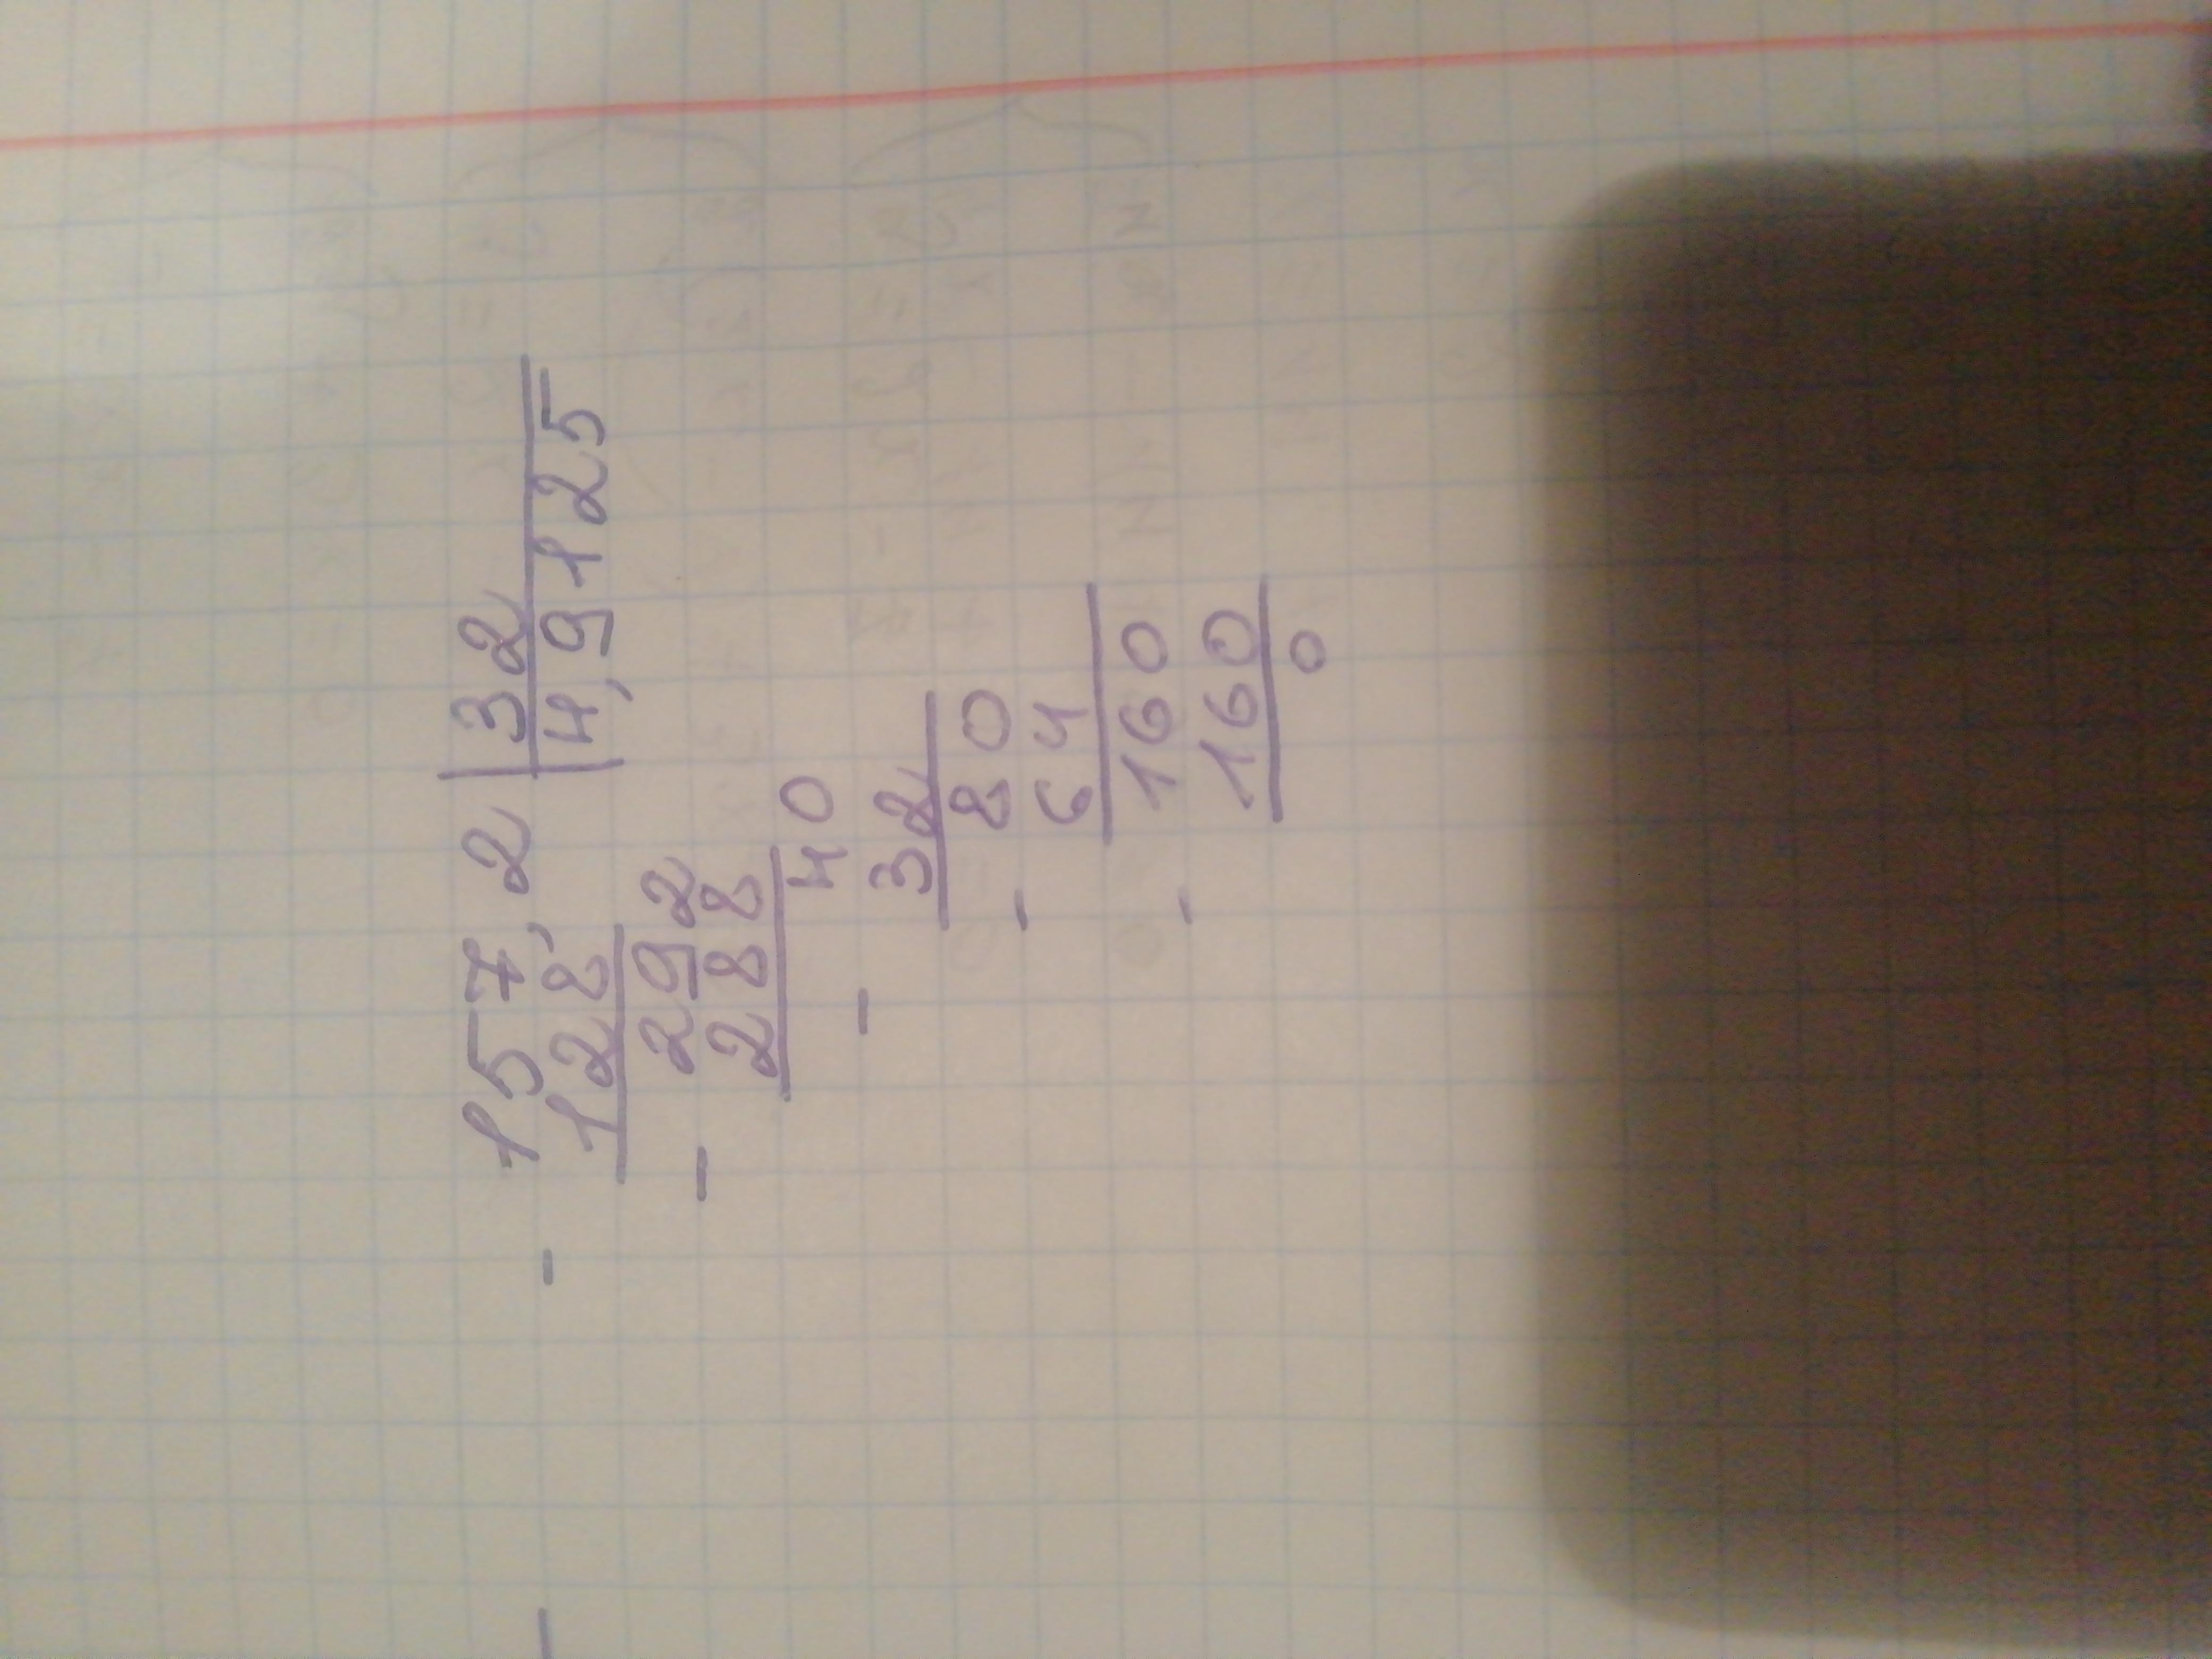 157,2 | 32
128 | 4,9125
- 292
288
- 40
32
- 80
64
- 160
160
0